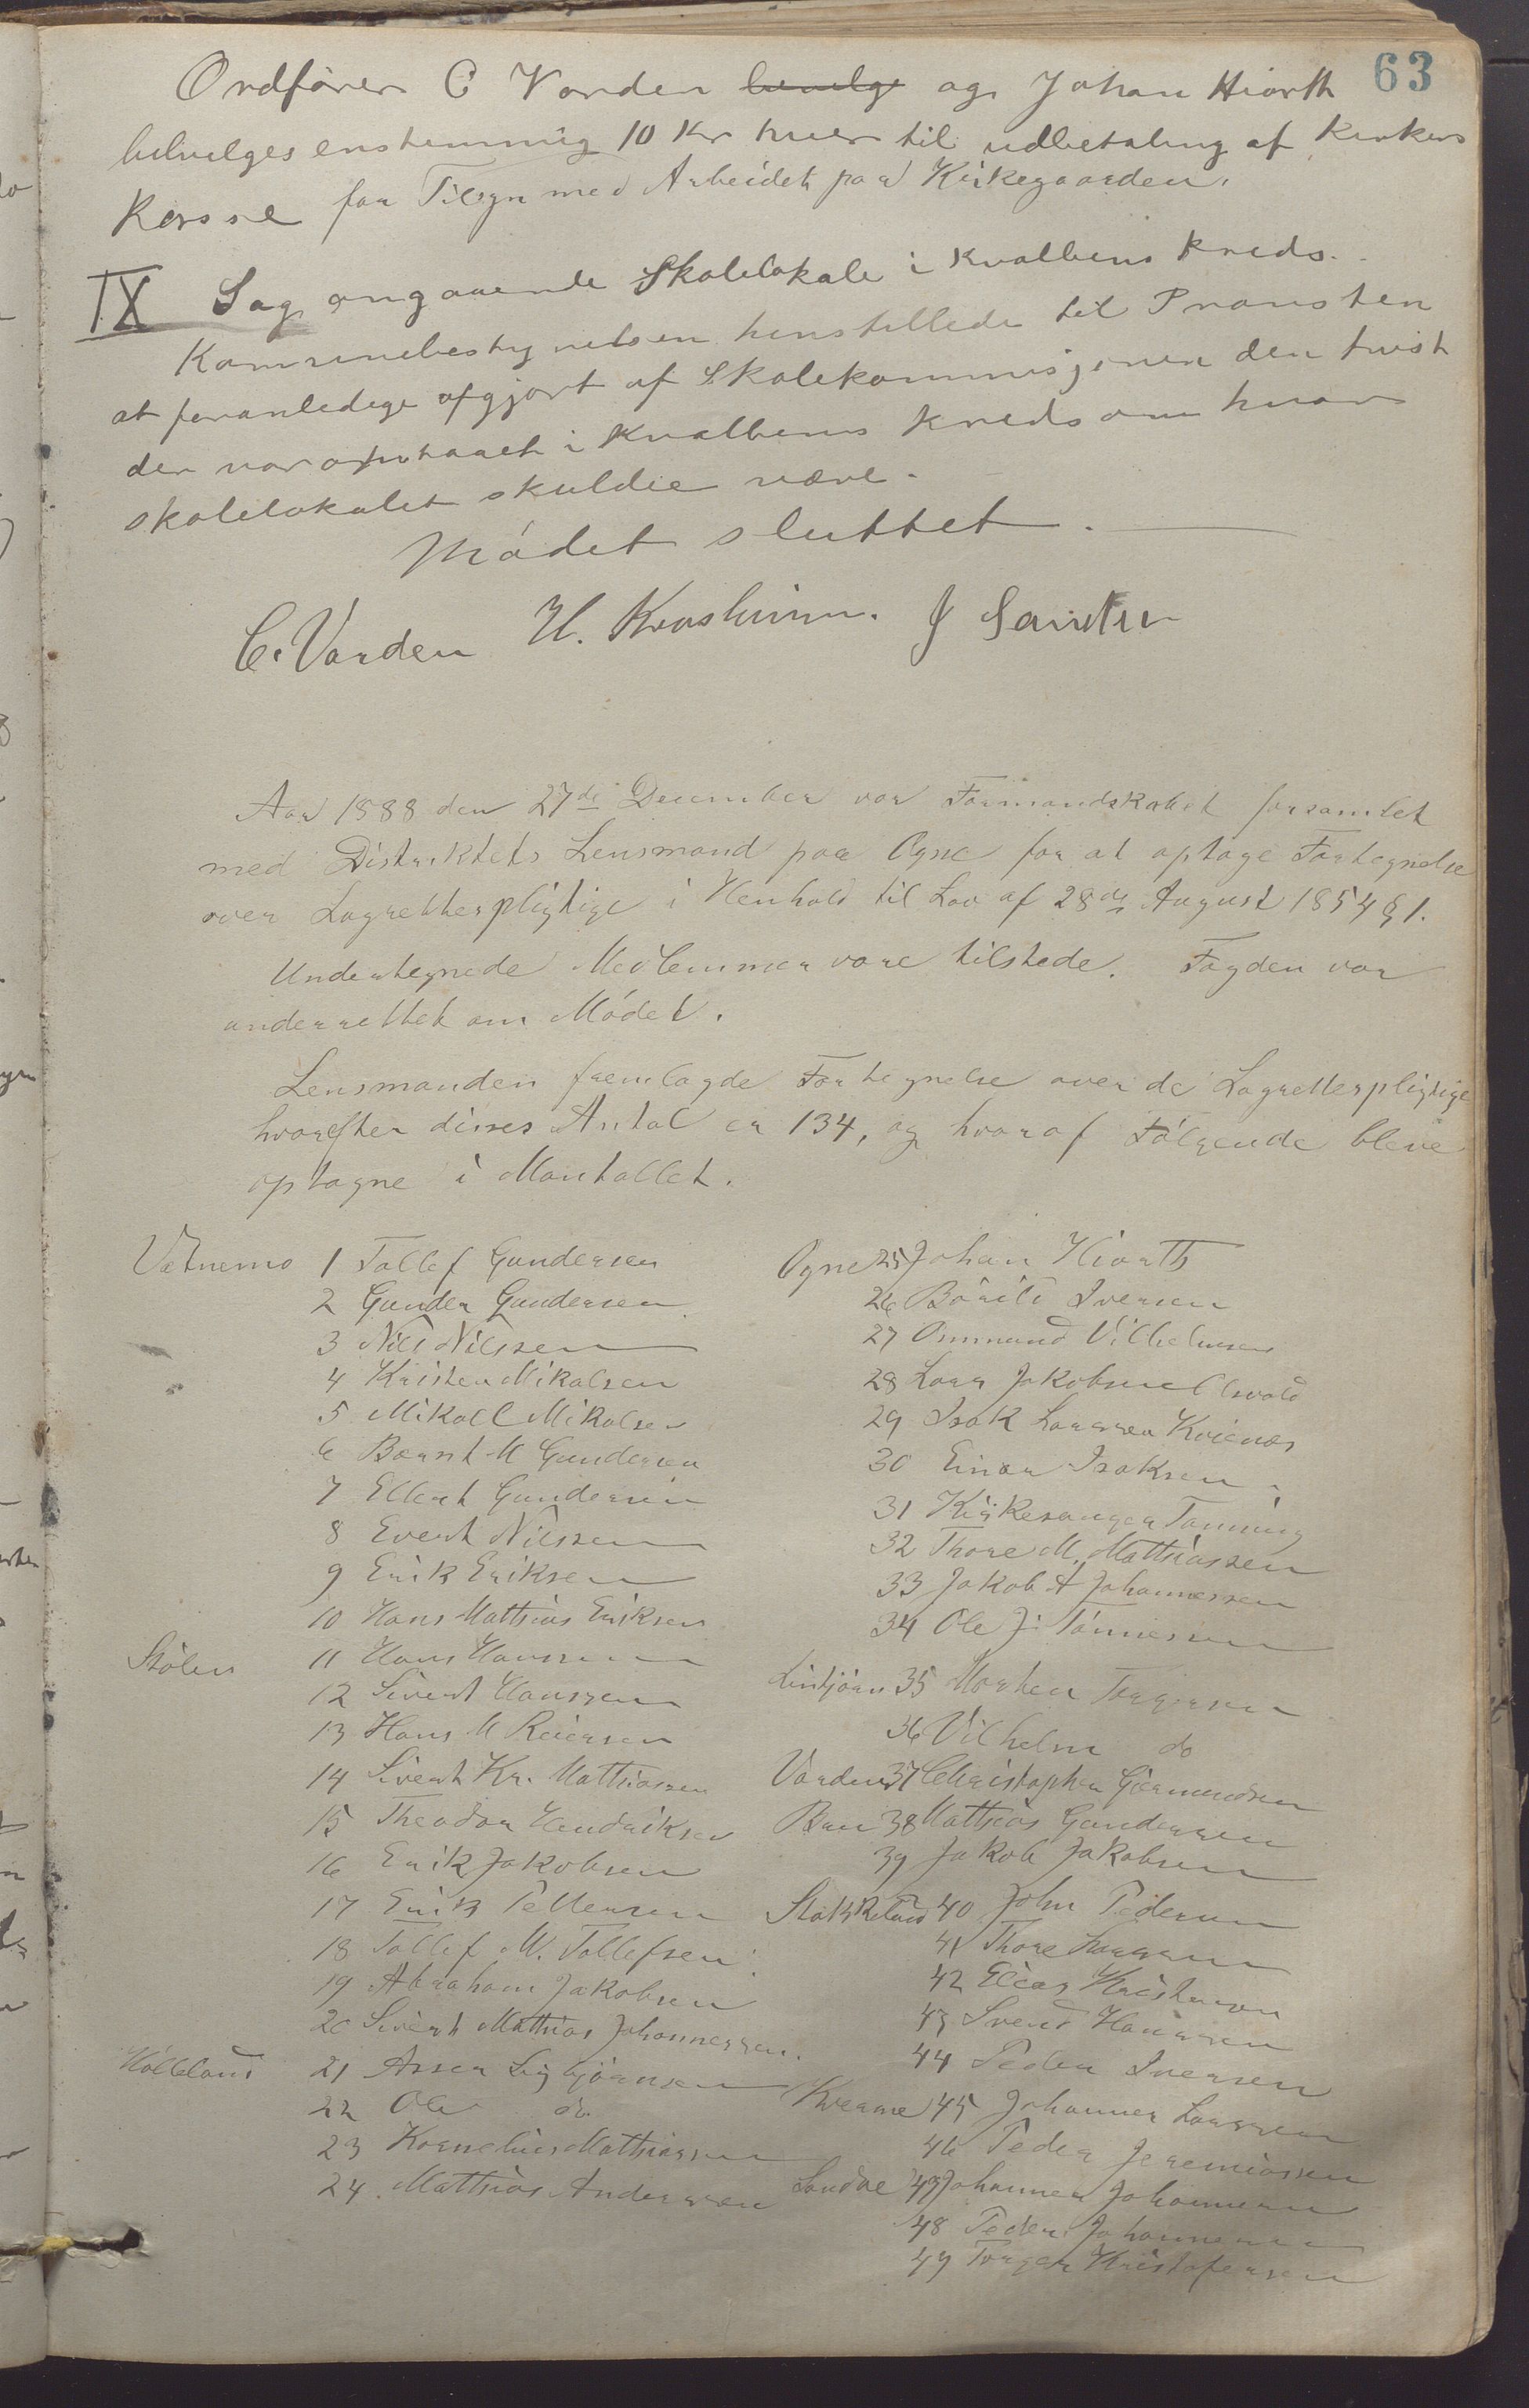 63
Ordfører C Varden bevilge og Johan Hiorth
bevelges enstemmig 10 Kr hver til udbetaling af Kirkens
Kasse for Tilsyn med Arbeidet paa Kirkegaarden.
IX Sag angaaende Skolelokale i Kvalbens Kreds.
Kommunebestyrelsen henstillede til Prousten
at foranledige afgjort af Skolekommisjonen den tvist
der var opstaaet i Kvalbens Kreds om hvor
skolelokalet skuldle være.
Mødet sluttet.
C. Varden H. Kvasheim. J Sandve
Aar 1888 den 27de December var Formandskabet forsamlet
med Distriktets Lensmand paa Ogne for at optage Fortegnelse
over Lagretterpligtige i Henhold til Lov af 28de August 1854 § 1.
Undertegnede Medlemmer vare tilstede. Fogden var
underrettet om Mødet.
Lensmanden fremlagde Fortegnelse over de Lagretterpligtige
hvorefter disses Antal er 134, og hvoraf Følgende bleve
optagne i Mantallet.
Vatnemo 1 Tollef Gundersen
2 Gunder Gundersen
3 Nils Nilssen
4 Kristen Mikalsen
5 Mikall Mikalsen
6 Bernt M Gundersen
7 Ellert Gundersen
8 Evert Nilssen
9 Erik Eriksen
10 Hans Mathias Eriksen
Stølen 11 Hans Hanssen
12 Sivert Hanssen
13 Hans M Reiersen
14 Sivert Kr. Mathiassen
15 Theodor Hendriksen
16 Erik Jakobsen
17 Erik Pettersen
18 Tollef M. Tollefsen
19 Abraham Jakobsen
20 Sivert Mathias Johannessen.
Hølleland 21 Asser Sigbjørnsen
22 Ole do
23 Kornelius Mathiassen
24 Mathias Anderssen
Ogne 25 Johan Hiorth
26 Børild Iversen
27 Ommund Vilhelmsen
28 Lars Jakobsen
29 Isak Larssen Kvienes
30 Einar Isaksen
31 Kirkesanger Tønning
32 Thore M. Mathiassen
33 Jakob A Johannessen
34 Ole J. Tønnessen
Lintjørn 35 Morten Torgersen
36 Vilhelm do
Varden 37 Christopher Gjermundsen
Bru 38 Mathias Gunderssen
39 Jakob Jakobsen
Stokkeland 40 John Pedersen
41 Thore Larssen
42 Elias Kristensen
43 Svend Hanssen
44 Peder Iversen
Kverme 45 Johannes Larssen
46 Peder Jeremiassen
Sandve 47 Johannes Johannessen
48 Peder Johannessen
49 Torger Kristofersen